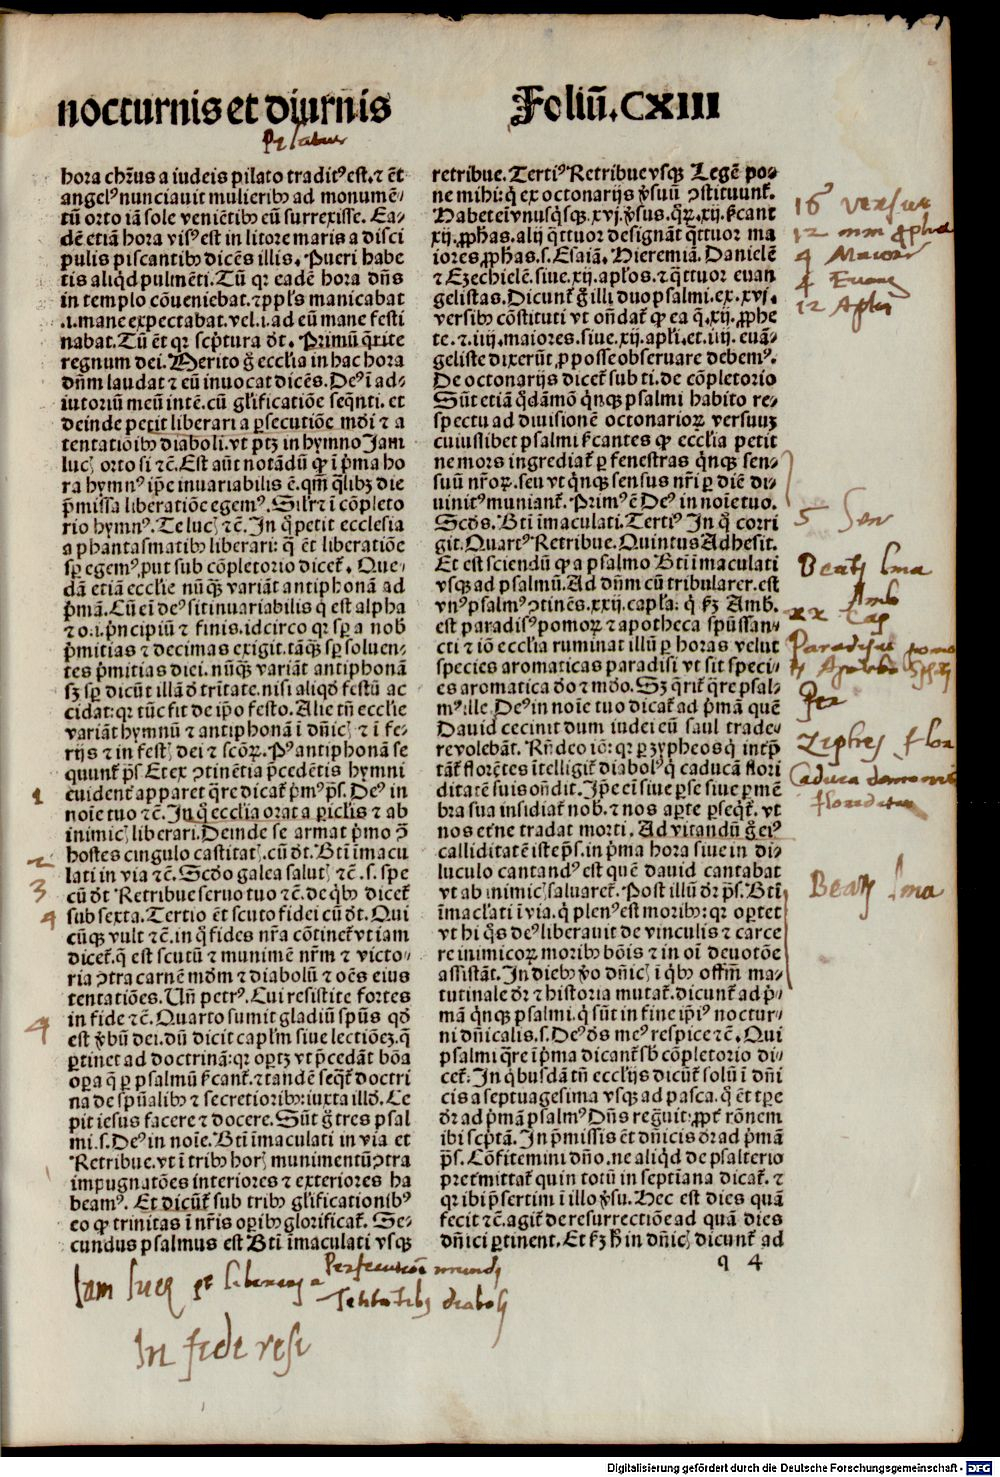 nocturnis et diurnis
Foliū. CXIII
hora chr̄us a iudeis pilato traditꝰ est. ⁊ ēt
angelꝰ nunciauit mulieribꝫ ad monumē⸗
tū orto iā sole veniētibꝫ eū surrexisse. Ea⸗
dē etiā hora visꝰ est in litore maris a disci
pulis piscantibꝫ dicēs illis. Pueri habe
tis aliqd pulmēti. Tū qr eadē hora dn̄s
in templo cōueniebat. ⁊ ppl̄s manicabat
.i. mane expectabat. vel .i. ad eū mane festi
nabat. Tū ēt qr scp̄tura dt̄. Primū q̄rite
regnum dei. Merito ḡ ecclīa in hac hora
dn̄m laudat ⁊ eū inuocat dicēs. Deꝰ ī ad⸗
iutoriū meū intē. cū gl̄ificatiōe seq̄nti. et
deinde petit liberari a ꝑsecutiōe mōi ⁊ a
tentatiōibꝫ diaboli. vt ptꝫ in hymno Jam
lucꝭ orto si ⁊c̄. Est aūt notādū ꝙ ī p̄ma ho
ra hymnꝰ ip̄e inuariabilis ē. qm̄ q̄libꝫ die
p̄missa liberatiōe egemꝰ. Sil̄r ⁊ ī cōpleto
rio hymnꝰ. Te lucꝭ ⁊c̄. In q̄ petit ecclesia
a phantasmatibꝫ liberari: q̄ ēt liberatiōe
sꝑ egemꝰ, put sub cōpletorio dicet᷑. Que⸗
dā etiā ecclie nūq̄ꝫ variāt antiphonā ad
p̄mā. Cū ei deꝰ sit inuariabilis q̇ est alpha
⁊ o .i. pn̄cipiū ⁊ finis. idcirco qr sꝑ a nob̄
p̄mitias ⁊ decimas exigit. tāq̄ꝫ sꝑ soluen⸗
tes p̄mitias diei. nūq̄ꝫ variāt antiphonā
sꝫ sꝑ dicūt illā dō trītate. nisi aliqd̄ festū ac
cidat: qr tūc fit de ip̄o festo. Alie tn̄ ecclie
variāt hymnū ⁊ antiphonā ī dn̄icꝭ ⁊ ī fe⸗
rijs ⁊ in festꝭ dei ⁊ scōꝝ. Pꝰ antiphonā se
quunt᷑ p̄s. Et ex ɔtinētia p̄cedētis hymni
euident᷑ apparet q̄re dicat᷑ p̄mꝰ p̄s. Deꝰ in
noīe tuo ⁊c̄. In q̄ ecclīa orat a piclis ⁊ ab
inimicꝭ liberari. Deinde se armat p̄mo ɔ̄
hostes cingulo castitatꝭ. cū dt̄. Bt̄i īmacu
lati in via ⁊c̄. Scdo galea salutꝭ ⁊c̄ .s. spe
cū dt̄ Retribue seruo tuo ⁊c̄. de q̇bꝫ dicet᷑
sub sexta. Tertio ēt scuto fidei cū dt̄. Qui
cūq̄ꝫ vult ⁊c̄. in q̄ fides nr̄a cōtinet᷑ vt iam
dicet᷑. q̄ est scutū ⁊ munimē nr̄m ⁊ victo⸗
ria ɔtra carnē mōm ⁊ diabolū ⁊ oēs eius
tentatiōes. Un̄ petrꝰ. Cui resistite fortes
in fide ⁊c̄. Quarto sumit gladiū spūs qd̄
est v̄bū dei. dū dicit capl̄m siue lectiōeꝫ. q̄
ꝑtinet ad doctrinā: qr oꝑtꝫ vt p̄cedāt bōa
oꝑa q̄ ꝑ psalmū s̄cant᷑. ⁊ tandē seq̄t᷑ doctri
na de spūalibꝫ ⁊ secretioribꝫ: iuxta illd̄. Ce
pit iesus facere ⁊ docere. Sūt ḡ tres psal
mi .s. Deꝰ in noīe. Bt̄i īmaculati in via et
Retribue. vt ī tribꝫ horꝭ munimentū ɔtra
impugnatōes interiores ⁊ exteriores ha
beamꝰ. Et dicūt᷑ sub tribꝫ gl̄ificationibꝰ
eo ꝙ trinitas ī nr̄is oꝑibꝫ glorificat᷑. Se⸗
cundus psalmus est Bt̄i īmaculati vsqꝫ
retribue. Tertiꝰ Retribue vsqꝫ Legē po⸗
ne mihi: q̇ ex octonarijs v̄suū ɔstituunt᷑.
Habet eī vnusq̇sqꝫ .xvj. v̄sus. q̄ꝝ .xij. s̄cant
xij. ꝓphas. alij q̄ttuor designāt q̄ttuor ma
iores ꝓphas .s. Esaiā. Hieremiā. Danielē
⁊ Ezechielē. siue .xij. apl̄os. ⁊ q̄ttuor euan
gelistas. Dicunt᷑ ḡ illi duo psalmi .ex .xvj.
versibꝫ cōstituti vt on̄dat᷑ ꝙ ea q̄ .xij. ꝓphe
te. ⁊ .iiij. maiores. siue .xij. apl̄i. et .iiij. euā⸗
geliste dixerūt ꝓ posse obseruare debemꝰ.
De octonarijs dicet᷑ sub ti. de cōpletorio
Sūt etiā q̇dāmō q̇nqꝫ psalmi habito re⸗
spectu ad diuisionē octonarioꝝ versuuꝫ
cuiuslibet psalmi s̄cantes ꝙ ecclīa petit
ne mors ingrediat᷑ ꝑ fenestras q̇nqꝫ sen⸗
suū nr̄oꝝ. seu vt q̇nqꝫ sensus nr̄i ꝑ diē di⸗
uinitꝰ muniant᷑. Primꝰ ē Deꝰ in noīe tuo.
Scds̄. Bt̄i īmaculati. Tertiꝰ In q̄ corri
git. Quartꝰ Retribue. Quintus Adhesit.
Et est sciendū ꝙ a psalmo Bt̄i īmaculati
vsqꝫ ad psalmū. Ad dn̄m cū tribularer. est
vnꝰ psalmꝰ ɔtinēs .xxij. capl̄a: q̇ s̄ꝫ Amb.
est paradisꝰ pomoꝝ ⁊ apotheca spūssan⸗
cti ⁊ iō ecclīa ruminat illū ꝑ horas velut
species aromaticas paradisi vt sit speci⸗
es aromatica dō ⁊ mdō. Sꝫ q̄rit᷑ q̄re psal⸗
mꝰ ille. Deꝰ in noīe tuo dicat᷑ ad p̄mā quē
Dauid cecinit dum iudei eū saul trade⸗
re volebāt. Rn̄deo iō: qr ꝑ zypheos q̇ int̄p
tāt᷑ florētes ītelligit᷑ diabolꝰ q̇ caducā flori
ditatē suis on̄dit. Ip̄e eī siue ꝑ se siue ꝑ mē
bra sua insidiat᷑ nob̄. ⁊ nos aꝑte ꝑseq̇t᷑. vt
nos et̄ne tradat morti. Ad vitandū ḡ eiꝰ
calliditatē iste p̄s. in p̄ma hora siue in di⸗
luculo cantandꝰ est quē dauid cantabat
vt ab inimicꝭ saluaret᷑. Post illū dr̄ p̄s. Bt̄i
īmac̄lati ī via. q̇ plenꝰ est moribꝫ: qr oꝑtet
vt hi q̇s deꝰ liberauit de vinculis ⁊ carce
re inimicoꝝ moribꝫ bōis ⁊ in oī deuotōe
assistāt. In diebꝫ v̄o dn̄icꝭ ī q̇bꝫ offm̄ ma⸗
tutinale dr̄ ⁊ historia mutat᷑. dicunt᷑ ad p̄⸗
mā q̇nqꝫ psalmi. q̇ sūt in fine ip̄iꝰ noctur⸗
ni dn̄icalis .s. Deꝰ dꝰs meꝰ respice ⁊c̄. Qui
psalmi q̄re ī p̄ma dicant᷑ sb̄ cōpletorio di⸗
cet᷑: In q̇busdā tn̄ ecclījs dicūt᷑ solū ī dn̄i
cis a septuagesima vsqꝫ ad pasca. q̇ ēt tꝑe
dr̄ ad p̄mā psalmꝰ Dn̄s regn̄uit: ꝓpt᷑ rōnem
ibi scp̄tā. In p̄missis ēt dn̄icis dr̄ ad p̄mā
p̄s. Cōfitemini dn̄o. ne aliqd̄ de psalterio
pretmittat᷑ quin totū in septiana dicat᷑. ⁊
qr ibi p̄sertim ī illo v̄su. Hec est dies quā
fecit ⁊c̄. agit᷑ de resurrectiōe ad quā dies
dn̄ici ꝑtinent. Et s̄ꝫ h̄ in dn̄icꝭ dicunt᷑ ad
q 4
16 versus
12 min ꝓphe
4 Maiores
4 Euang
12 Apl̄i
5 Sen
Beati Ima
Amb
xx Cap
Paradisus pomo
Ziphei flon
Caduca demonis
floriditas
Beati Ima
1
2
3
4
4
Jam lucis
Persecutiōe mundi
Tentationibꝫ diaboli
In fide resi
Digitalisierung gefördert durch die Deutsche Forschungsgemeinschaft - DFG